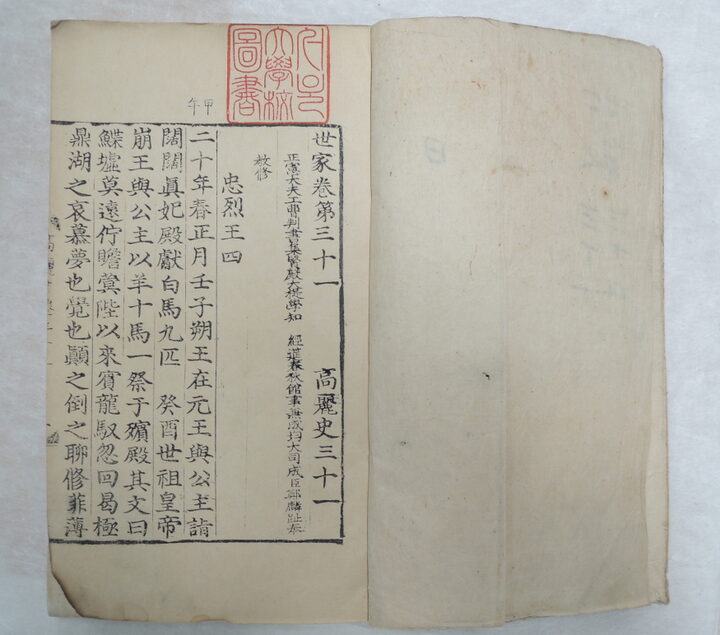 世家卷第三十一 高麗史三十一
正憲大夫工曹判書集賢殿大提學知 經筵春秋館事兼成均大司成臣鄭麟趾奉
敎修
忠烈王四
甲午
二十年春正月壬子朔王在元王與公主詣
闕闕眞妃殿獻白馬九匹 癸酉世祖皇帝
崩王與公主以羊十馬一祭于殯殿其文曰
鰈墟莫遠佇瞻蓂陛以來賓龍馭忽回曷極
鼎湖之哀慕夢也覺也顚之倒之聊修菲薄
文學校
圖書